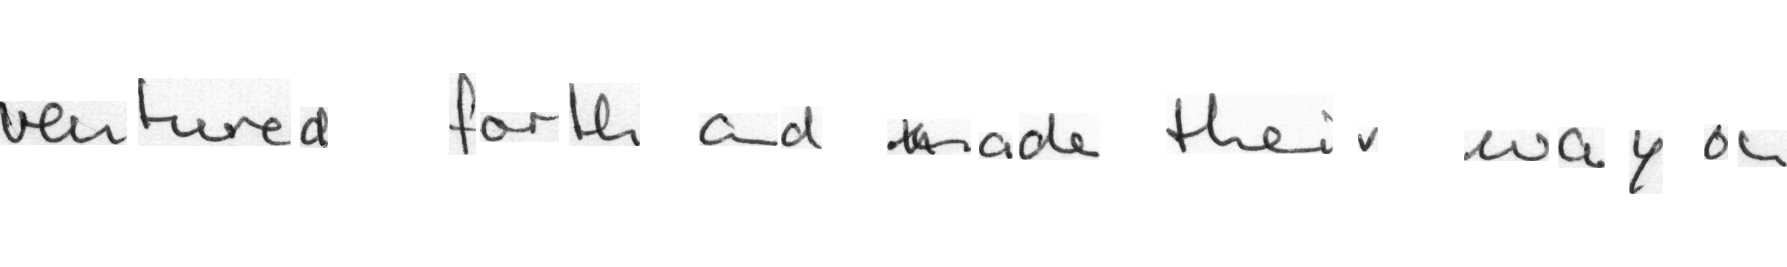 ventured forth and made their way on